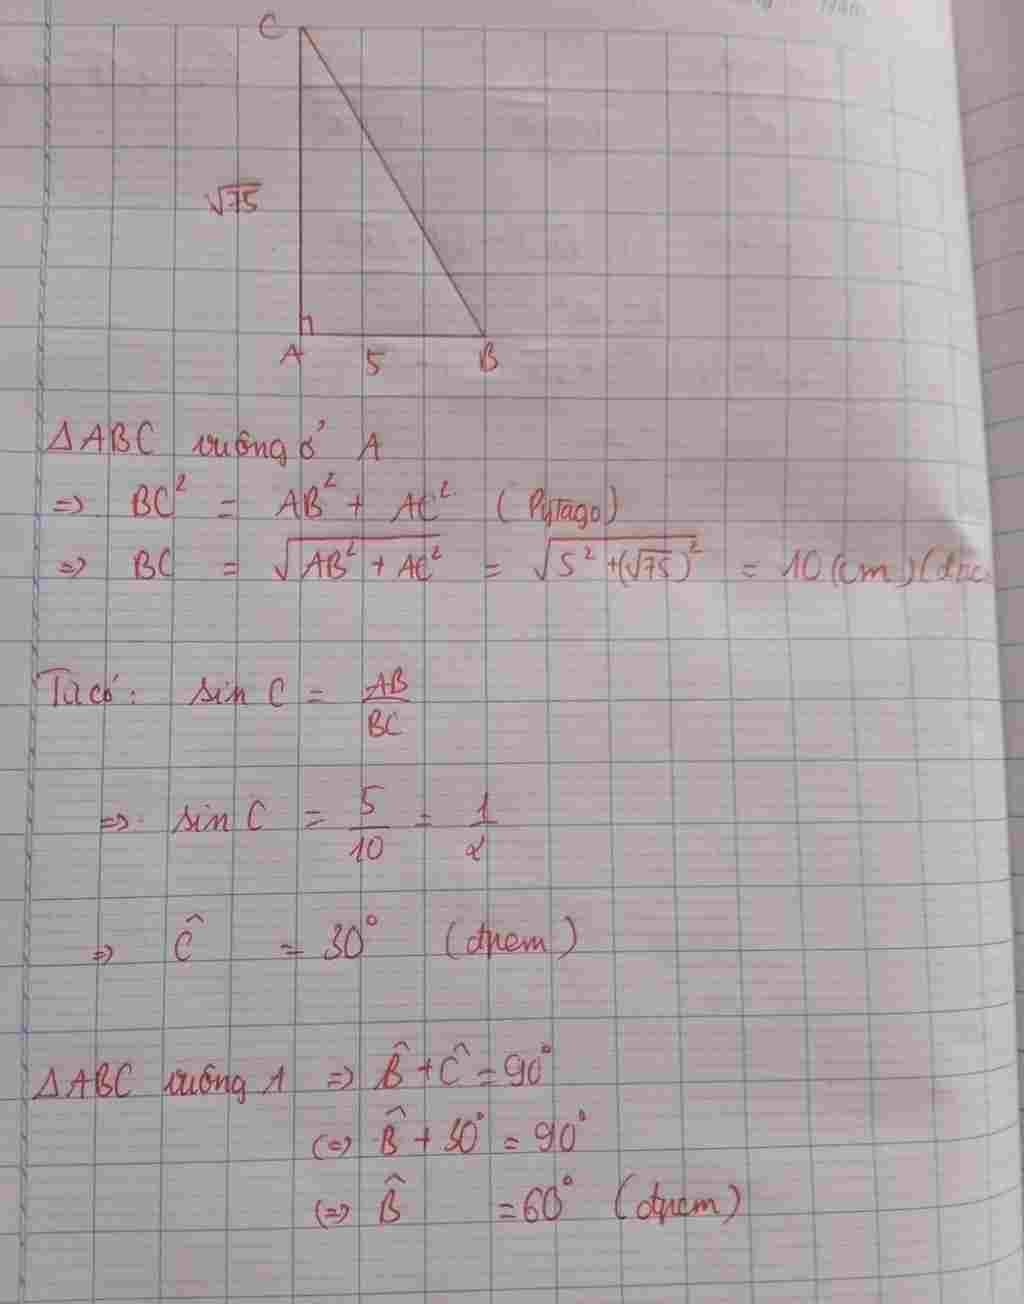 C
√75
A 5 B
ΔABC vuông ở A
=> BC² = AB² + AC² (Pytago)
=> BC = √(AB² + AC²) = √(5² + (√75)²) = 10 (cm) (đpc
Ta có: sin C = AB/BC
=> sin C = 5/10 = 1/2
=> Ĉ = 30° (đpcm)
ΔABC vuông A => B̂ + Ĉ = 90°
<=> B̂ + 30° = 90°
<=> B̂ = 60° (đpcm)